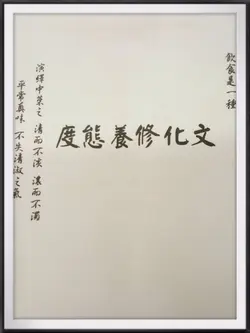 飲食是一種
文化修養態度
演繹中菜之 清而不淡 濃而不濁
平常真味 不失清淑之氣